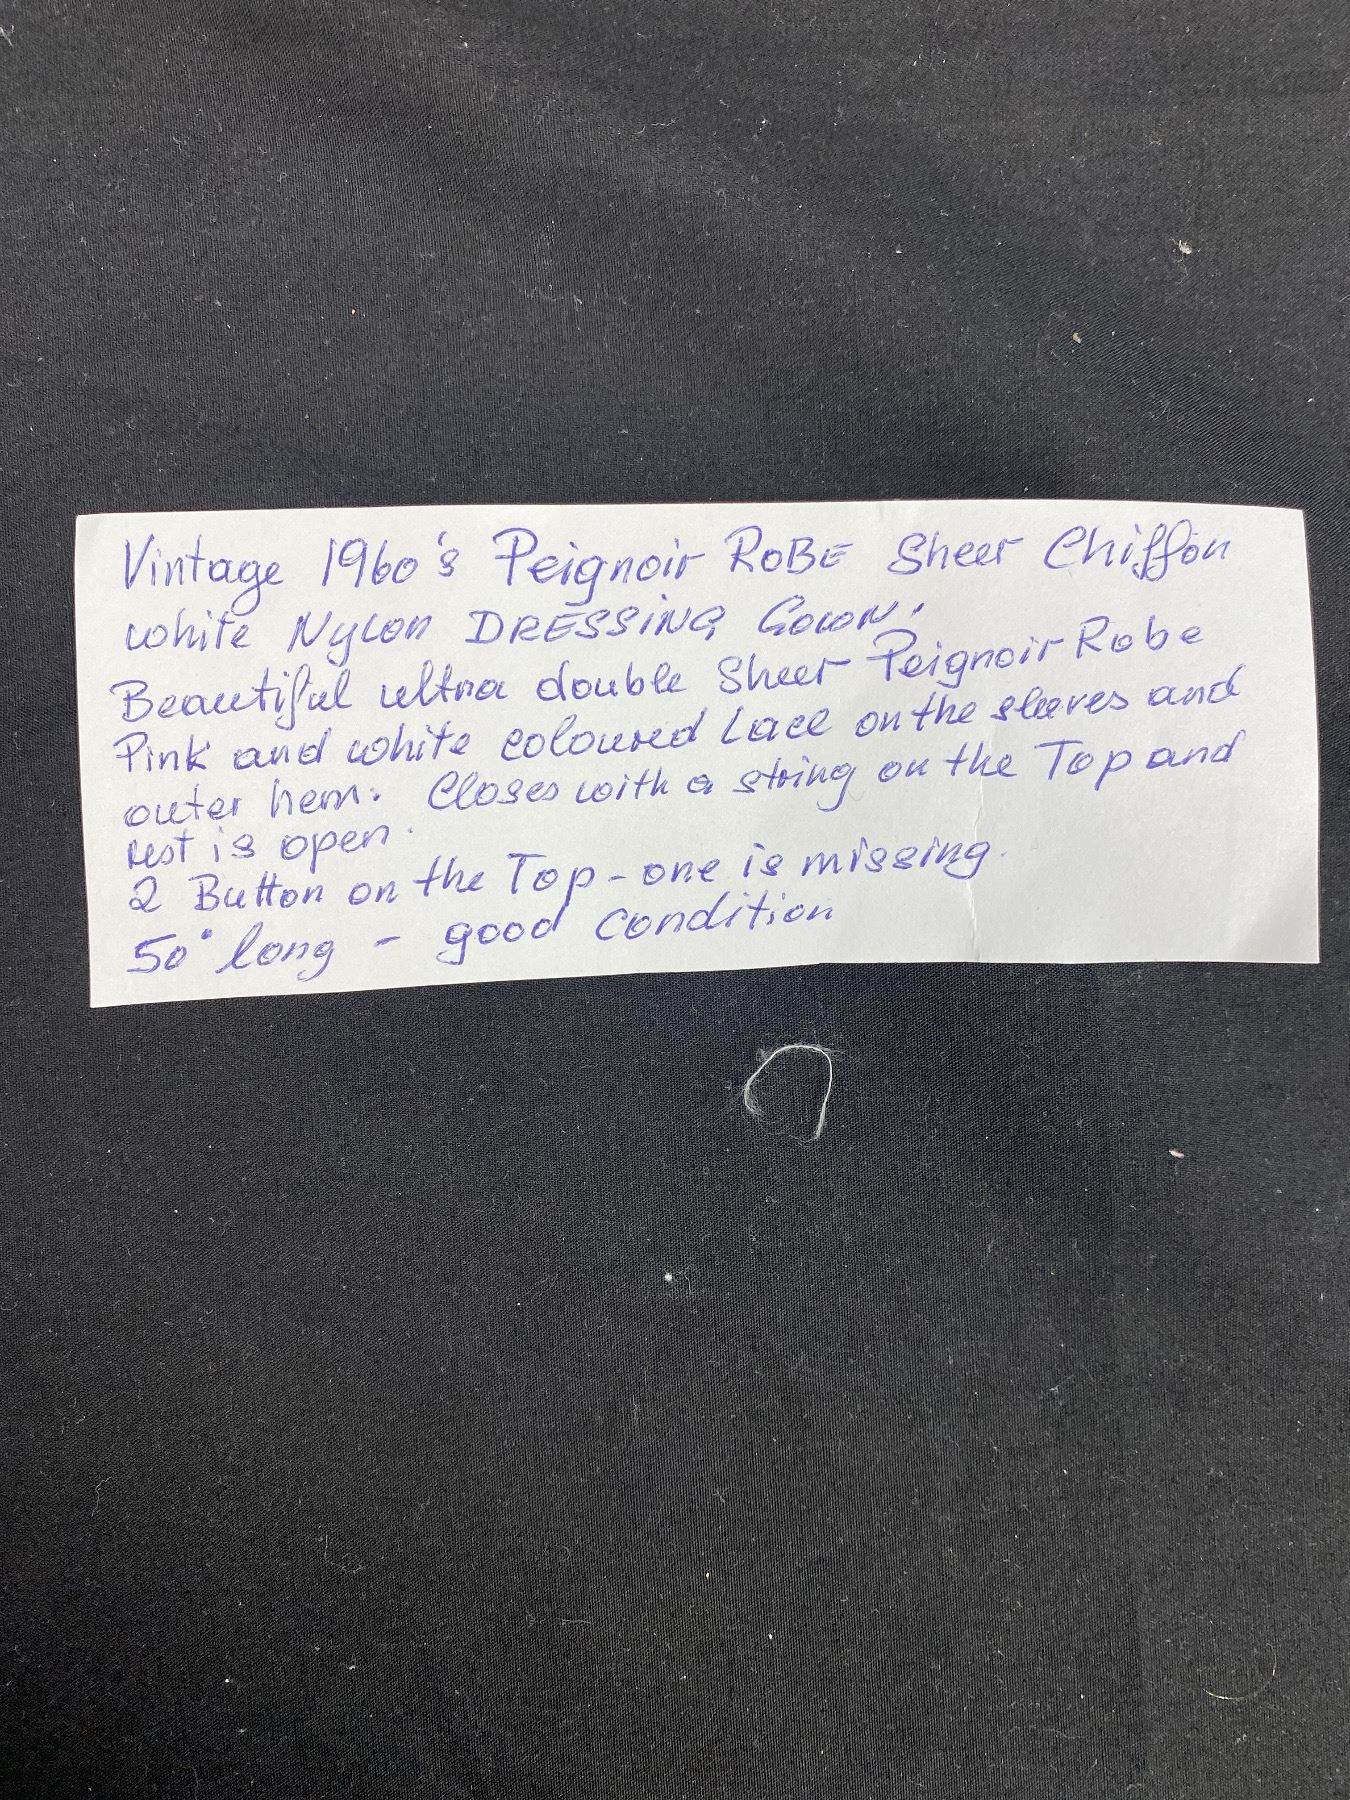 Vintage 1960's Peignoir RoBE Sheer Chiffon
white Nylon DRESSING GowN.
Beautiful ultra double Sheer Peignoir Robe
Pink and white coloured Lace on the sleeves and
outer hem. Closes with a string on the Top and
rest is open.
2 Button on the Top - one is missing.
50" long - good condition